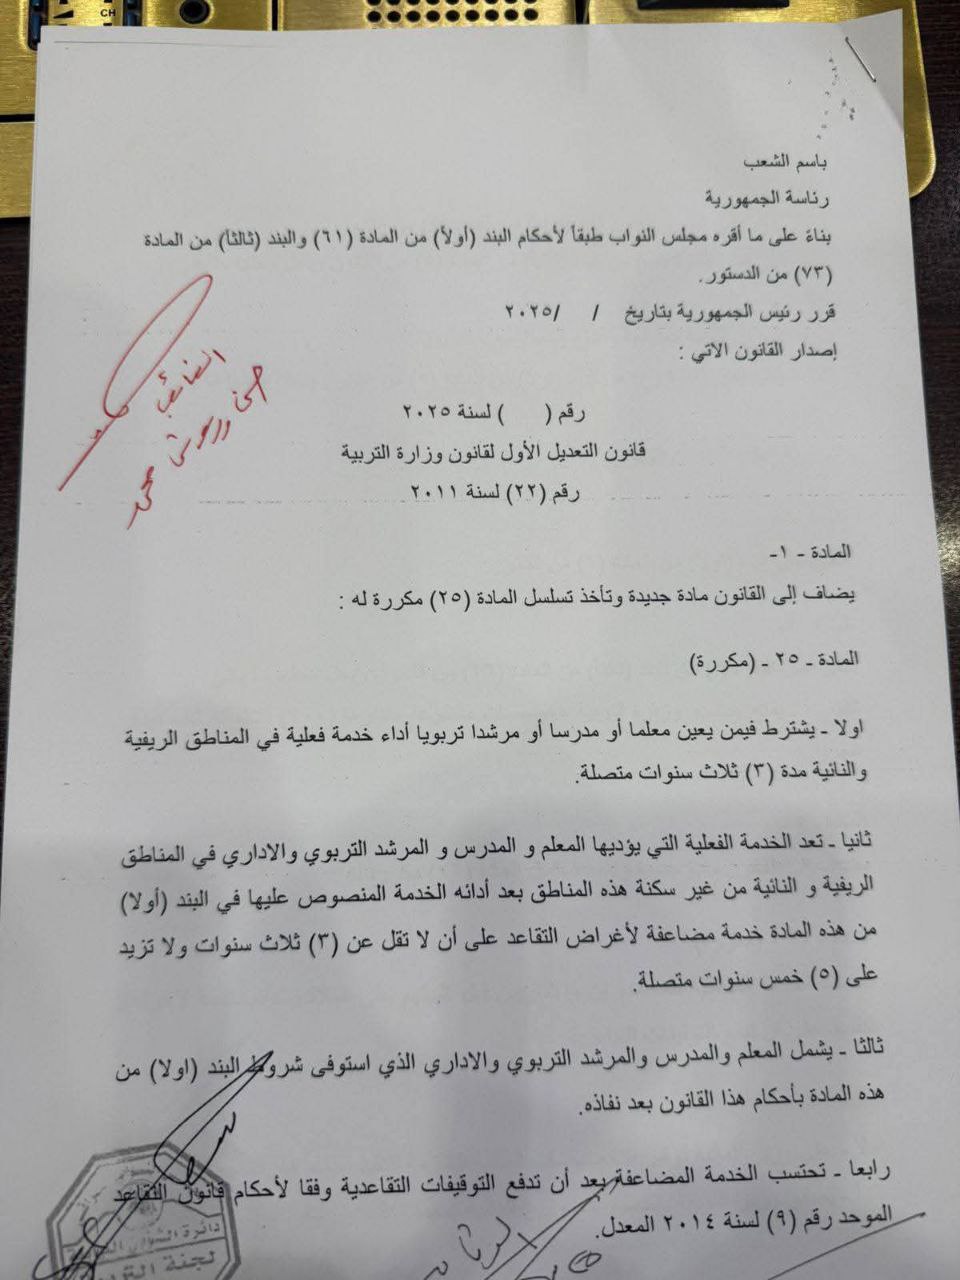 CH
باسم الشعب
رئاسة الجمهورية
بناءً على ما أقره مجلس النواب طبقاً لأحكام البند (أولاً) من المادة (٦١) والبند (ثالثاً) من المادة
(٧٣) من الدستور.
قرر رئيس الجمهورية بتاريخ / /٢٠٢٥
إصدار القانون الاتي :
رقم ( ) لسنة ٢٠٢٥
قانون التعديل الأول لقانون وزارة التربية
رقم (٢٢) لسنة ٢٠١١
النائب
المادة - ١-
يضاف إلى القانون مادة جديدة وتأخذ تسلسل المادة (٢٥) مكررة له :
المادة - ٢٥ - (مكررة)
اولا - يشترط فيمن يعين معلما أو مدرسا أو مرشدا تربويا أداء خدمة فعلية في المناطق الريفية
والنائية مدة (٣) ثلاث سنوات متصلة.
ثانيا - تعد الخدمة الفعلية التي يؤديها المعلم و المدرس و المرشد التربوي والاداري في المناطق
الريفية و النائية من غير سكنة هذه المناطق بعد أدائه الخدمة المنصوص عليها في البند (أولا)
من هذه المادة خدمة مضاعفة لأغراض التقاعد على أن لا تقل عن (٣) ثلاث سنوات ولا تزيد
على (٥) خمس سنوات متصلة.
ثالثا - يشمل المعلم والمدرس والمرشد التربوي والاداري الذي استوفى شروط البند (اولا) من
هذه المادة بأحكام هذا القانون بعد نفاذه.
رابعا - تحتسب الخدمة المضاعفة بعد أن تدفع التوقيفات التقاعدية وفقا لأحكام قانون التقاعد
الموحد رقم (٩) لسنة ٢٠١٤ المعدل.
دائرة الشؤون
لجنة التربية